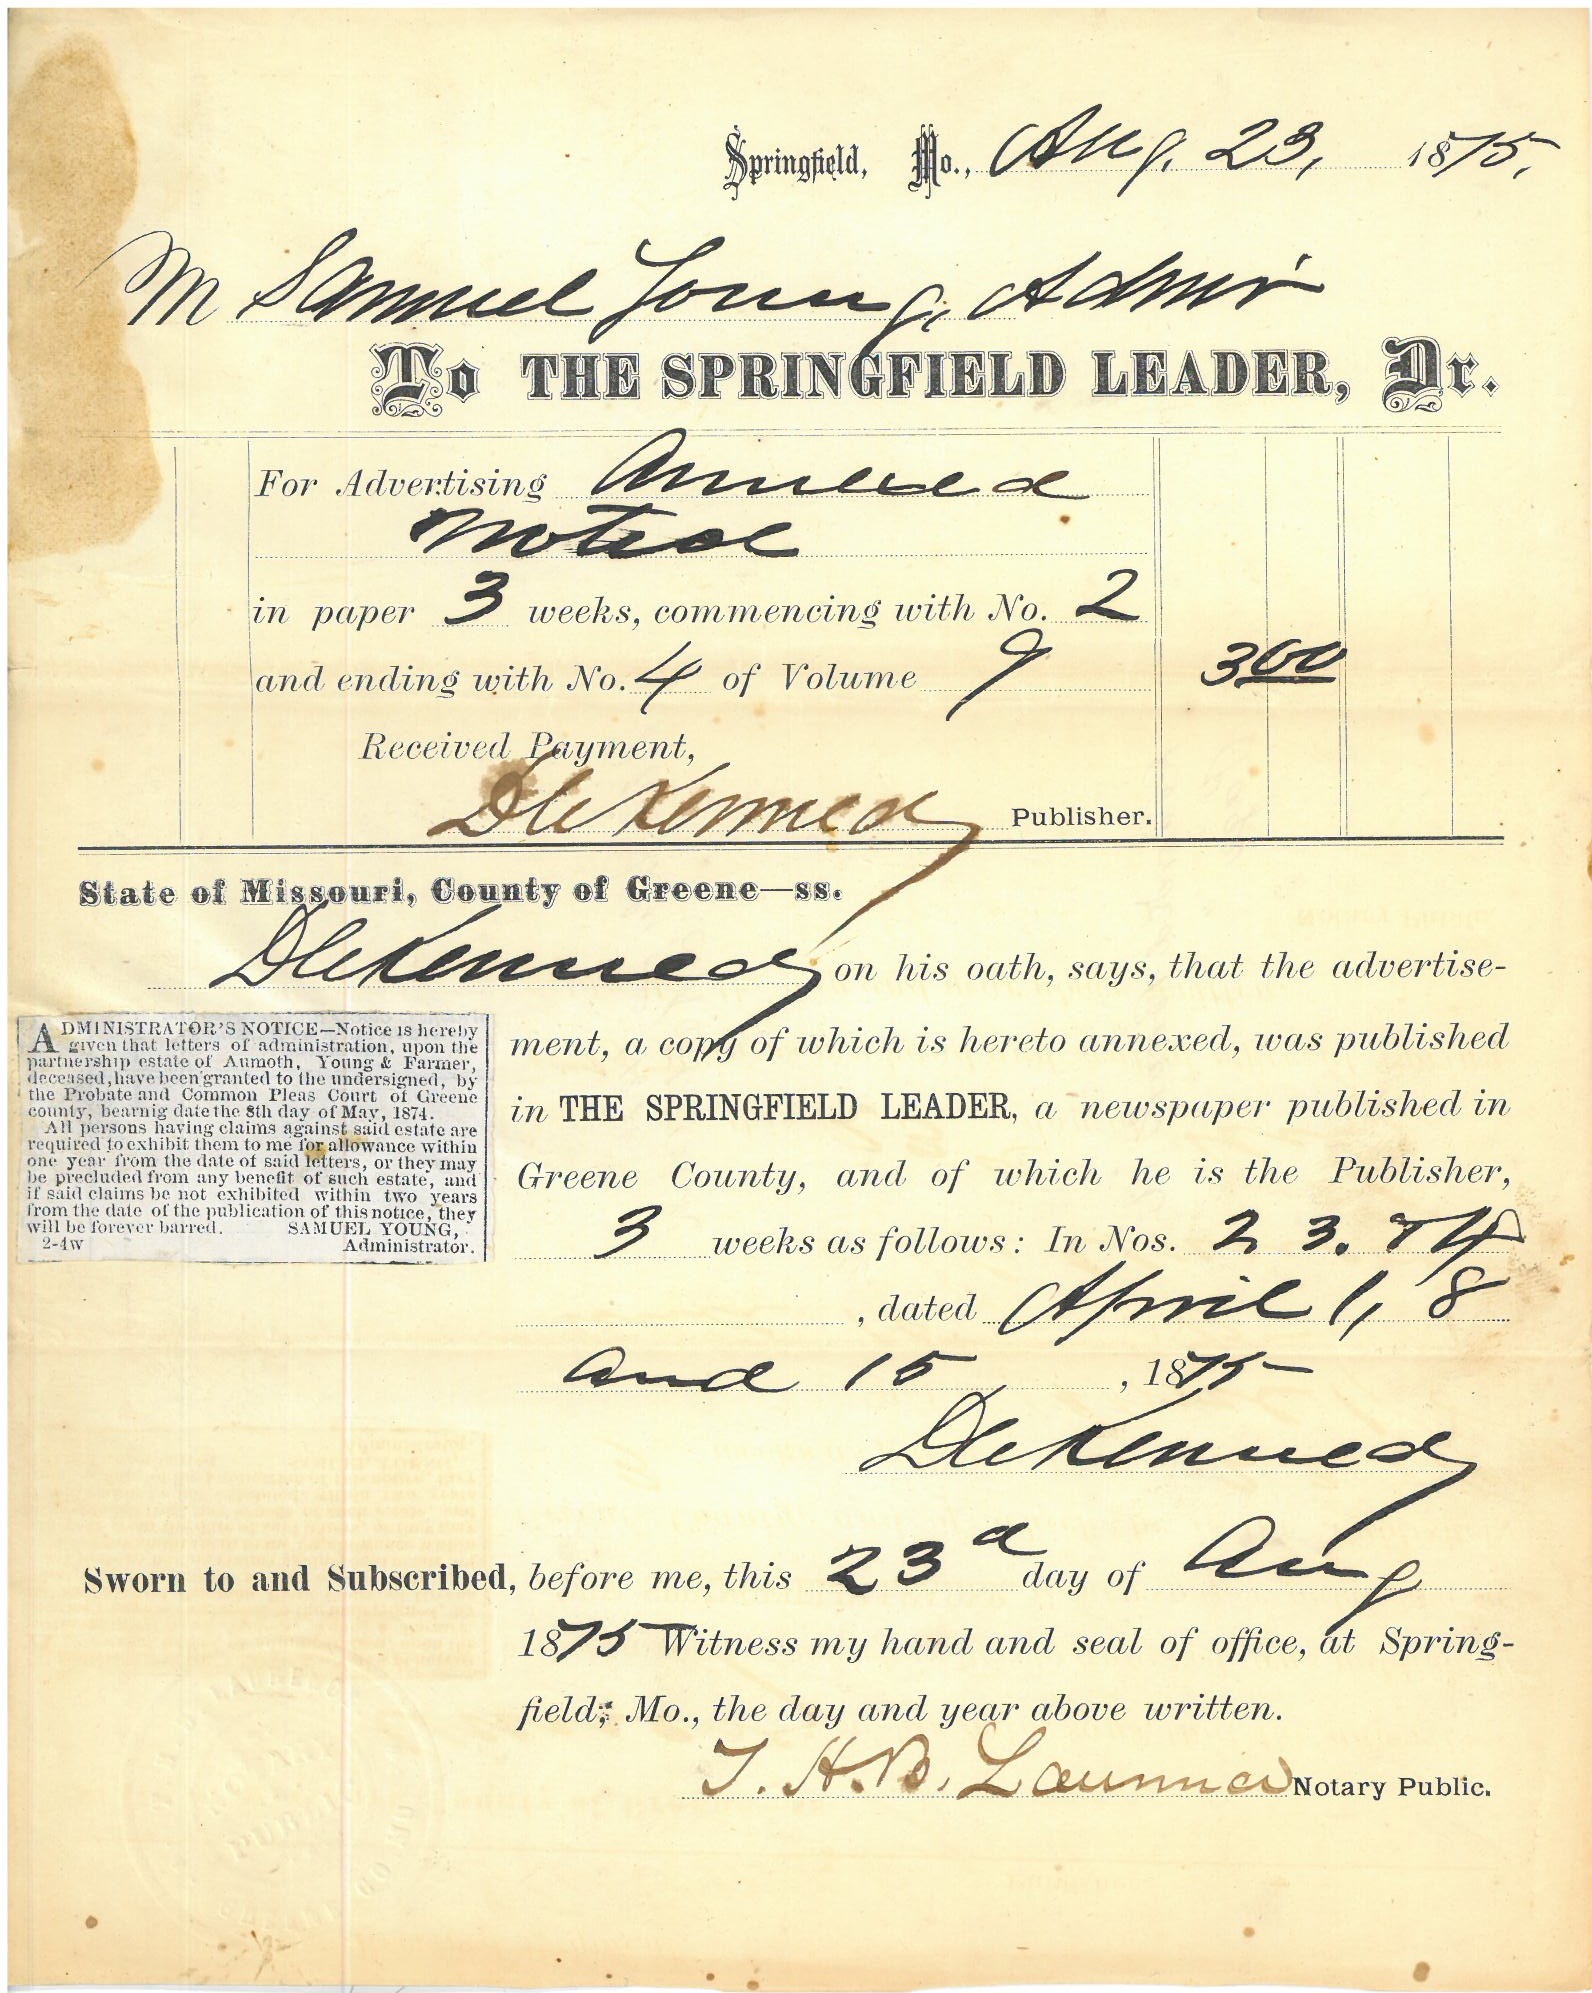 Springfield, Mo., Aug. 23, 1875.
M Samuel Young, Admr
To THE SPRINGFIELD LEADER, Dr.
For Advertising Annexed
Notice
in paper 3 weeks, commencing with No. 2
and ending with No. 4 of Volume 9 3 00
Received Payment,
D C Kennedy Publisher.
State of Missouri, County of Greene—ss.
D C Kennedy on his oath, says, that the advertise-
ment, a copy of which is hereto annexed, was published
in THE SPRINGFIELD LEADER, a newspaper published in
Greene County, and of which he is the Publisher,
3 weeks as follows: In Nos. 2 3. & 4
, dated April 1, 8
and 15, 1875
D C Kennedy
ADMINISTRATOR'S NOTICE—Notice is hereby
given that letters of administration, upon the
partnership estate of Aumoth, Young & Farmer,
deceased, have been granted to the undersigned, by
the Probate and Common Pleas Court of Greene
county, bearnig date the 8th day of May, 1874.
All persons having claims against said estate are
required to exhibit them to me for allowance within
one year from the date of said letters, or they may
be precluded from any benefit of such estate, and
if said claims be not exhibited within two years
from the date of the publication of this notice, they
will be forever barred. SAMUEL YOUNG,
2-4w Administrator.
Sworn to and Subscribed, before me, this 23d day of Aug
1875 Witness my hand and seal of office, at Spring-
field, Mo., the day and year above written.
T. H. B. Notary Public.